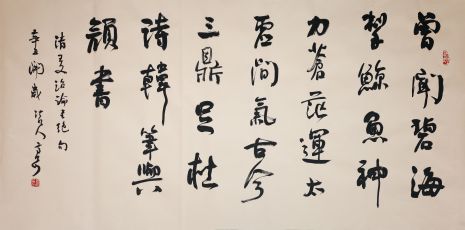 曾闻碧海
掣鲸鱼神
力苍茫运太
虚间气古今
三鼎足杜
诗韩笔与
颜书
清王文治论书绝句
辛丑